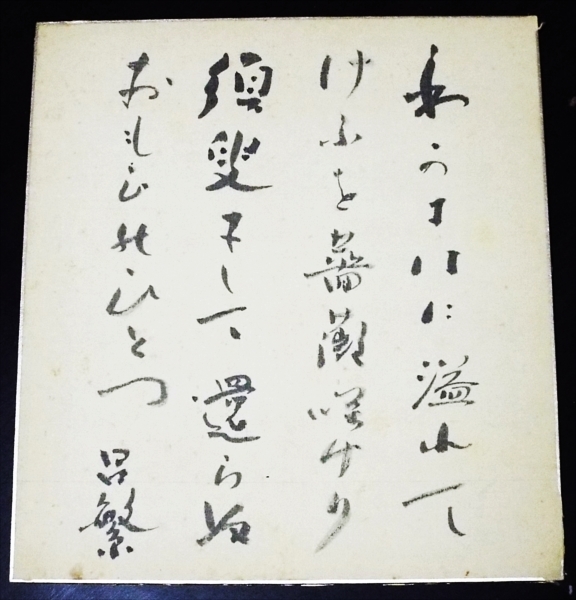 わかにはに溢れて
けふを薔薇咲けり
須臾にして還らぬ
おもひのひとつ
呂繁